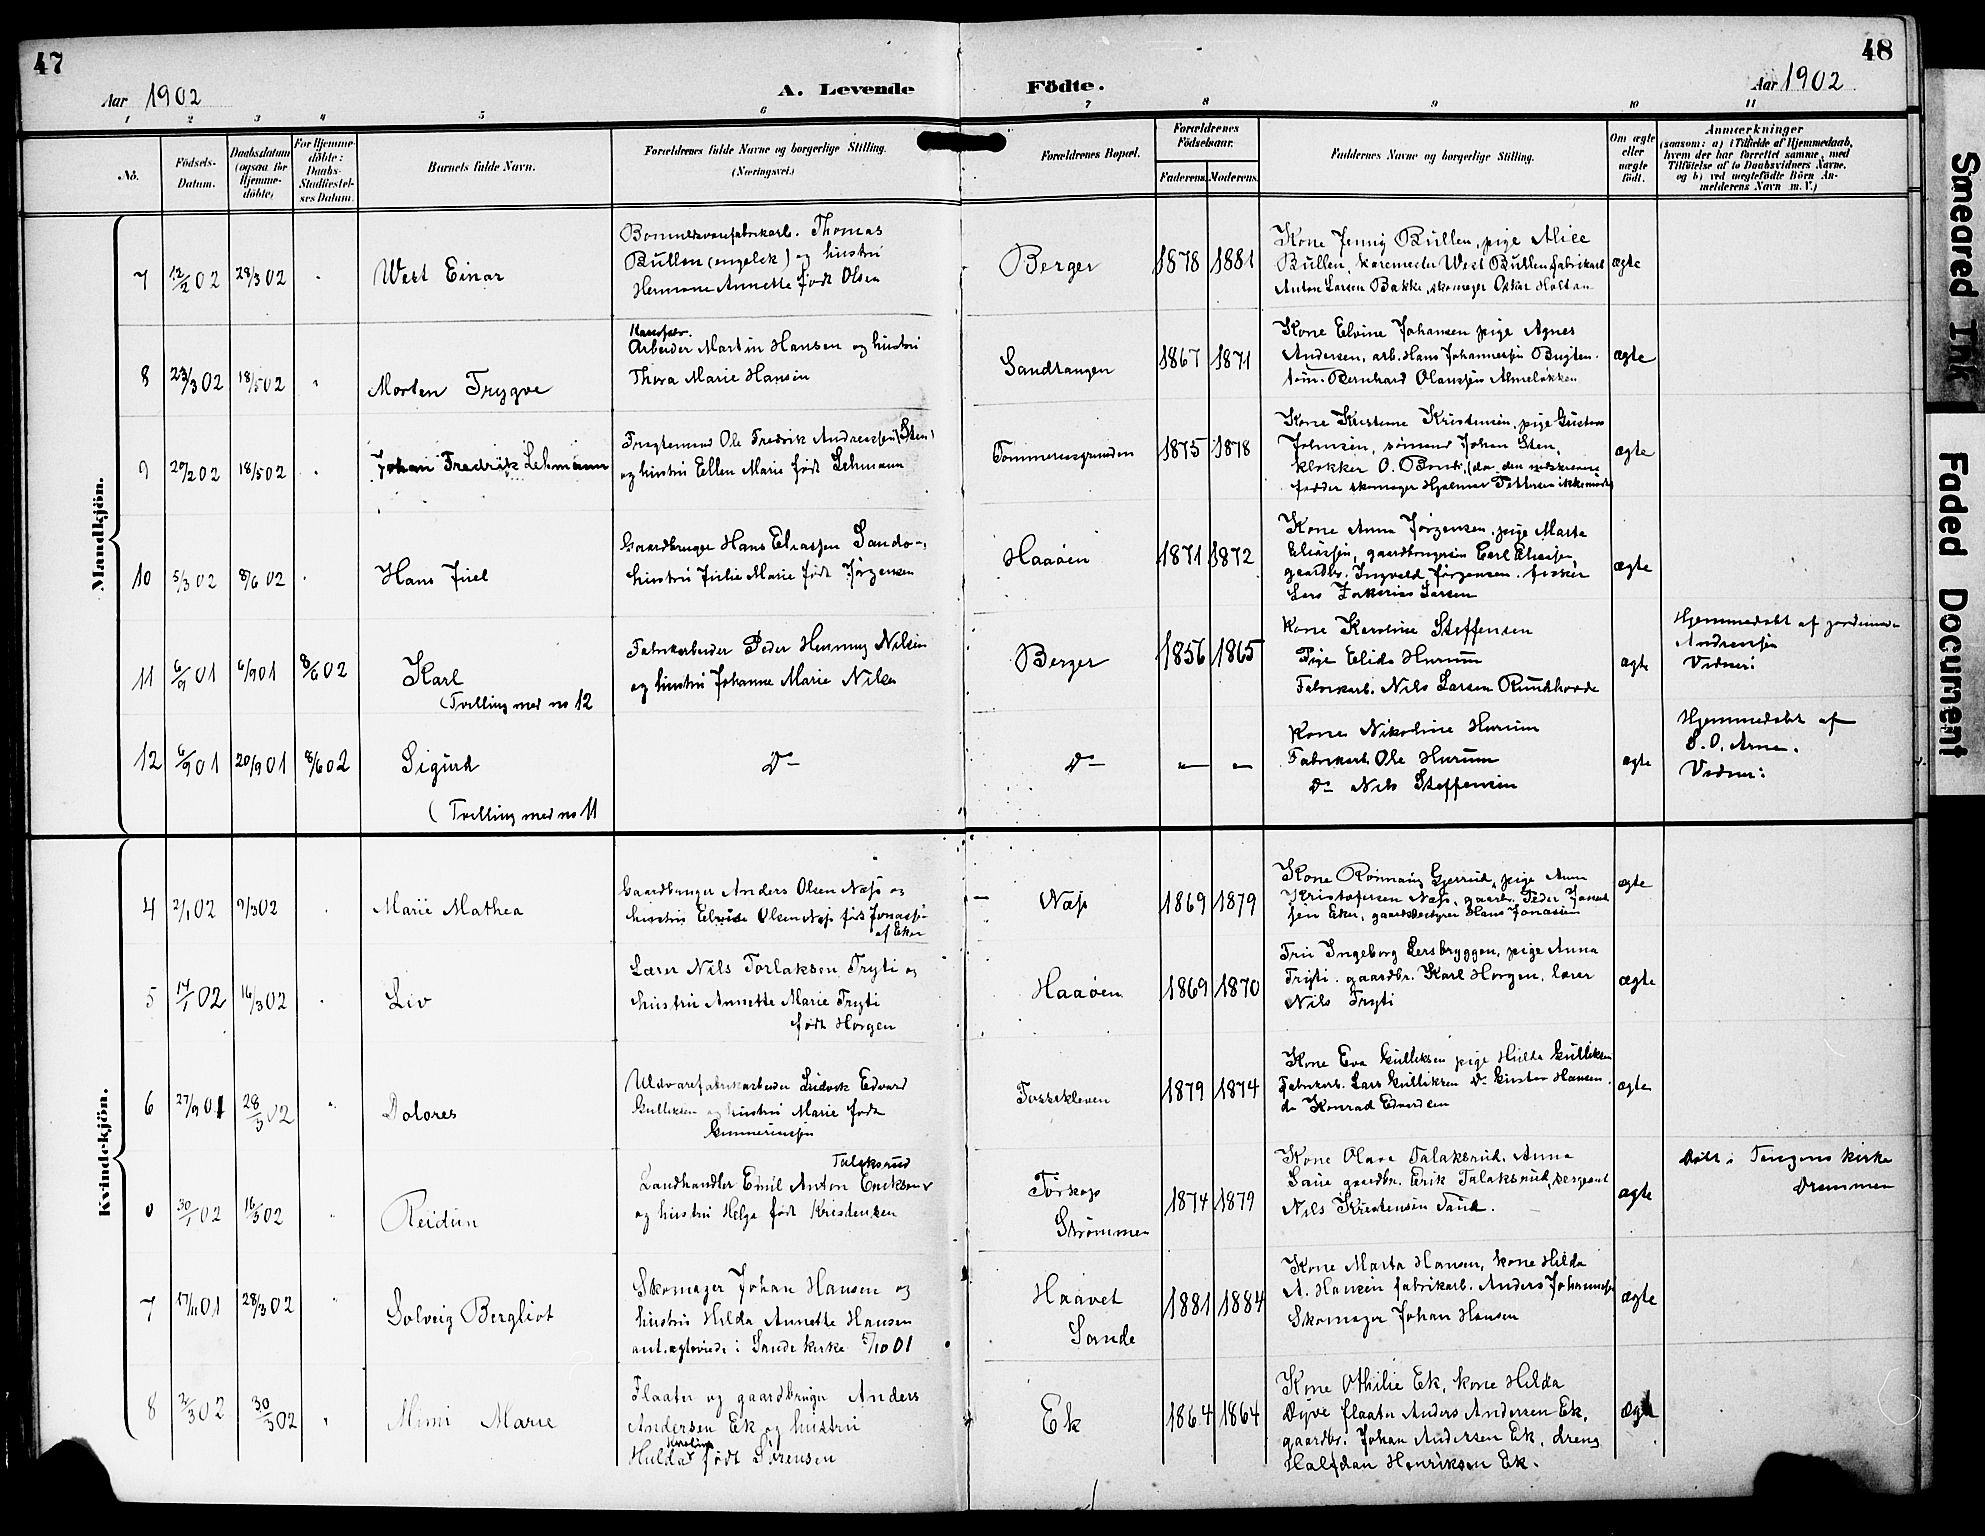 47
48
Aar 1902
A. Levende
Födte.
Aar 1902
1 2 3 4 5 6 7 8 9 10 11
No.
Födsels-
Datum.
Daabsdatum
(ogsaa for
Hjemme-
döbte)
For Hjemme-
döbte:
Daabs-
Stadfæstel-
ses Datum.
Barnets fulde Navn.
Forældrenes fulde Navne og borgerlige Stilling.
(Næringsvei.)
Forældrenes Bopæl.
Forældrenes
Födselsaar.
Faderens
Moderens
Faddernes Navne og borgerlige Stilling.
Om ægte
eller
uægte
födt.
Anmærkninger
(saasom: a) i Tilfælde af Hjemmedaab,
hvem der har forrettet samme, med
Tilföielse af to Daabsvidners Navne,
og b) ved uægtefödte Börn An-
melderens Navn m. V.)
Mandkjön.
7 12/2 02 28/3 02 West Einar
Bomuldsvarefabrikarb. Thomas
Bullen (engelsk) og hustru
Hermone Annette født Olsen
Berger 1878 1881
Kone Jenny Bullen, pige Alice
Bullen, West Bullen, fabrikarb
Anton Larsen Bakke, skomager Oskar Holtan
ægte
8 23/3 02 18/5 02 Morten Trygve
Arbeider Martin Hansen og hustru
Thora Marie Hansen
Sandtangen 1867 1871
Kone Elvine Johansen pige Agnes
Andersen, arb. Hans Johannessen
Bernhard Olaussen Almeløkken
ægte
9 20/2 02 18/5 02 Johan Fredrik Lehmann
Fragtemand Ole Fredrik Andreassen (Sten)
og hustru Ellen Marie født Lehmann
1875 1878
Kone Kristine Kristensen, pige Gustava
Johnsen, sømand Johan Sten,
klokker O. (da den
fadder skomager Hjalmar Pettersen ikke mødte)
ægte
10 5/3 02 8/6 02 Hans Juel
Gaardbruger Hans Eliassen Sando-,
hustru Julie Marie født Jørgensen
Haaøen 1871 1872
Kone Anna Jørgensen, pige Marte
Eliassen, gaardbrugersøn Carl Eliassen
gaardbr. Ingvald Jørgensen, fisker
Lars Zakarias Larsen
ægte
11 6/9 01 6/9 01 8/6 02 Karl
(Tvilling med no 12
Fabrikarbeider Peder Henning Nilsen
og hustru Johanne Marie Nilsen
Berger 1856 1865
Kone Karoline Steffensen
Pige Elida Hurum
Fabrikarb. Nils Larsen Rundhovde
ægte
Hjemmedøbt af jordmor
Andreassen
Vidner:
12 6/9 01 20/9 01 8/6 02 Sigurd
(Tvilling med no 11
Do
Do — —
Kone Nikoline Hurum
Fabrikarb. Ole Hurum
Do Nils Steffensen
ægte
Hjemmedøbt af
S. O. Arne.
Vidner:
Kvindekjön.
4 2/1 02 9/3 02 Marie Mathea
Gaardbruger Anders Olsen Næss og
hustru Elvide Olsen Næss født Jonassen
af Eker
Næss 1869 1879
Kone Rønnaug Gjerrud, pige Anna
Kristofersen Næss, gaardbr. Peder Jonas-
sen Eker, gaardbestyrer Hans Jonassen
ægte
5 14/1 02 16/3 02 Liv
Lærer Nils Torlaksen Tryti og
hustru Annette Marie Tryti
født Horgen
Haaøen 1869 1870
Fru Ingeborg Lersbryggen, pige Anna
Tryti, gaardbr. Karl Horgen, lærer
Nils Tryti
ægte
6 27/9 01 28/3 02 Dolores
Uldvarefabrikarbeider Ludvik Edvard
Gulliksen og hustru Marie født
Gunneriussen
Fossekleven 1879 1874
Kone Eva Gulliksen pige Hulda Gulliksen
Fabrikarb. Lars Gulliksen Do Gustav Hansen
do Konrad Edvardsen
ægte
0 30/1 02 16/3 02 Reidun
Talaksrud
Landhandler Emil Anton Eriksen
og hustru Helga født Kristensen
Tørkop
Strømmen
1874 1879
Kone Olava Talaksrud, Anna
gaardbr. Erik Talaksrud, sergeant
Nils Kristensen Sand.
ægte
Døbt i Tangens kirke
Drammen
7 17/11 01 28/3 02 Solveig Bergliot
Skomager Johan Hansen og
hustru Hilda Annette Hansen
ant. ægteviede i Sande kirke 5/10 01
Haavet
Sande
1881 1884
Kone Marta Hansen, kone Hilda
A. Hansen fabrikarb. Anders Johannessen
Skomager Johan Hansen
ægte
8 2/3 02 30/3 02 Mimi Marie
Flaater og gaardbruger Anders
Andersen Ek og hustru
Karoline
Hulda født Sørensen
Ek 1864 1864
Kone Othilie Ek, kone Hilda
Dyve flaater Anders Andersen Ek,
gaardbr. Johan Andersen Ek, dreng
Halfdan Henriksen Ek.
ægte
Smeared Ink
Faded Document